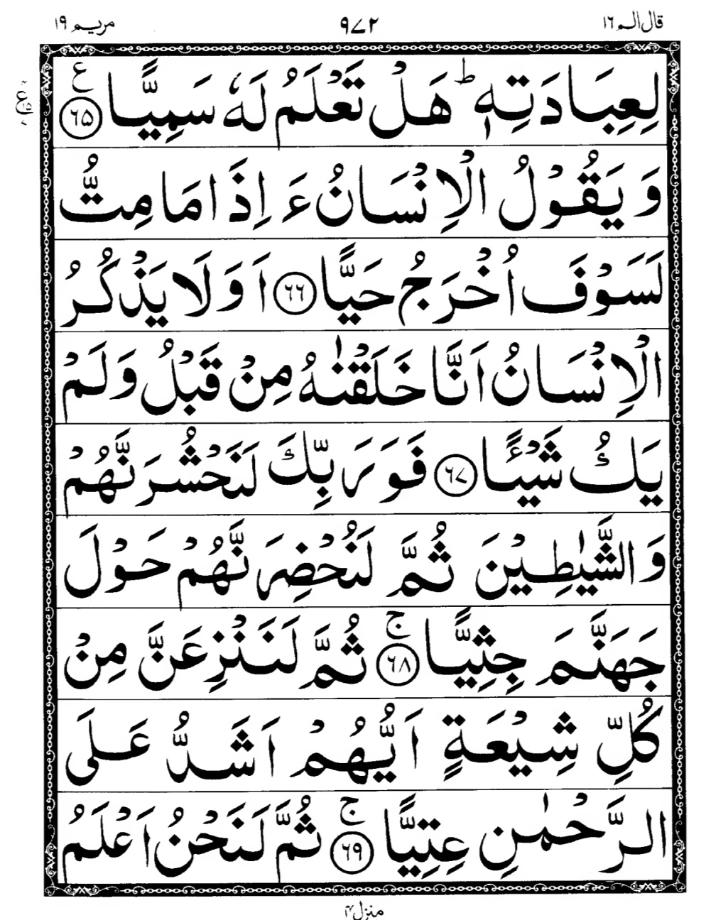 قال الم ١٦ ٩٧٢ مريم ١٩
لِعِبَادَتِهٖ ؕ هَلْ تَعْلَمُ لَهٗ سَمِيًّا ﴿٦٥﴾ ع
وَيَقُوْلُ الْاِنْسَانُ ءَاِذَا مَا مِتُّ
لَسَوْفَ اُخْرَجُ حَيًّا ﴿٦٦﴾ اَوَلَا يَذْكُرُ
الْاِنْسَانُ اَنَّا خَلَقْنٰهُ مِنْ قَبْلُ وَلَمْ
يَكُ شَيْـًٔا ﴿٦٧﴾ فَوَرَبِّكَ لَنَحْشُرَنَّهُمْ
وَالشَّيٰطِيْنَ ثُمَّ لَنُحْضِرَنَّهُمْ حَوْلَ
جَهَنَّمَ جِثِيًّا ﴿٦٨﴾ ۚ ثُمَّ لَنَنْزِعَنَّ مِنْ
كُلِّ شِيْعَةٍ اَيُّهُمْ اَشَدُّ عَلَى
الرَّحْمٰنِ عِتِيًّا ﴿٦٩﴾ ۚ ثُمَّ لَنَحْنُ اَعْلَمُ
منزل ٤